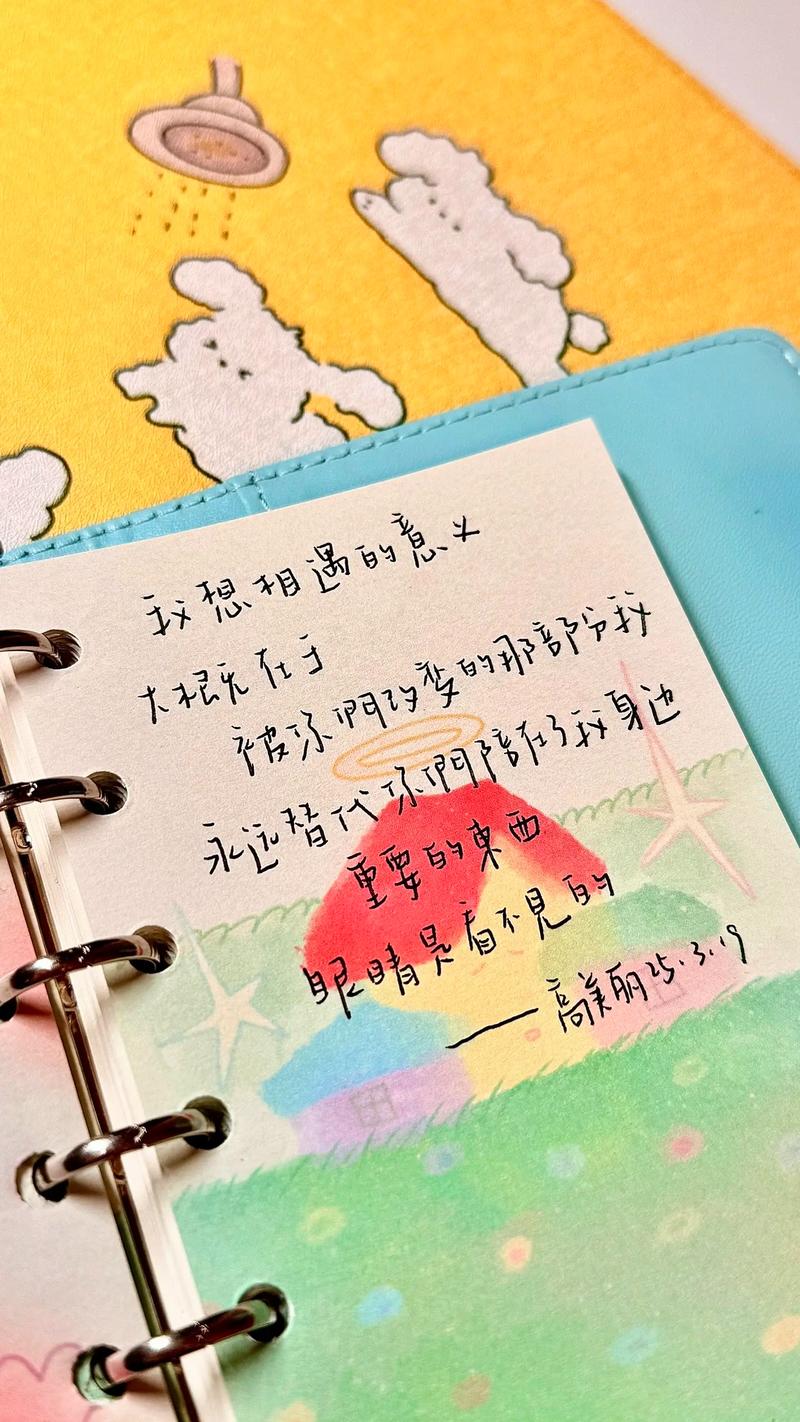 我想相遇的意义
大概在于
被你們改变的那部分我
永远替代你們陪在了我身边
重要的東西
眼睛是看不见的
——高美丽25.3.19